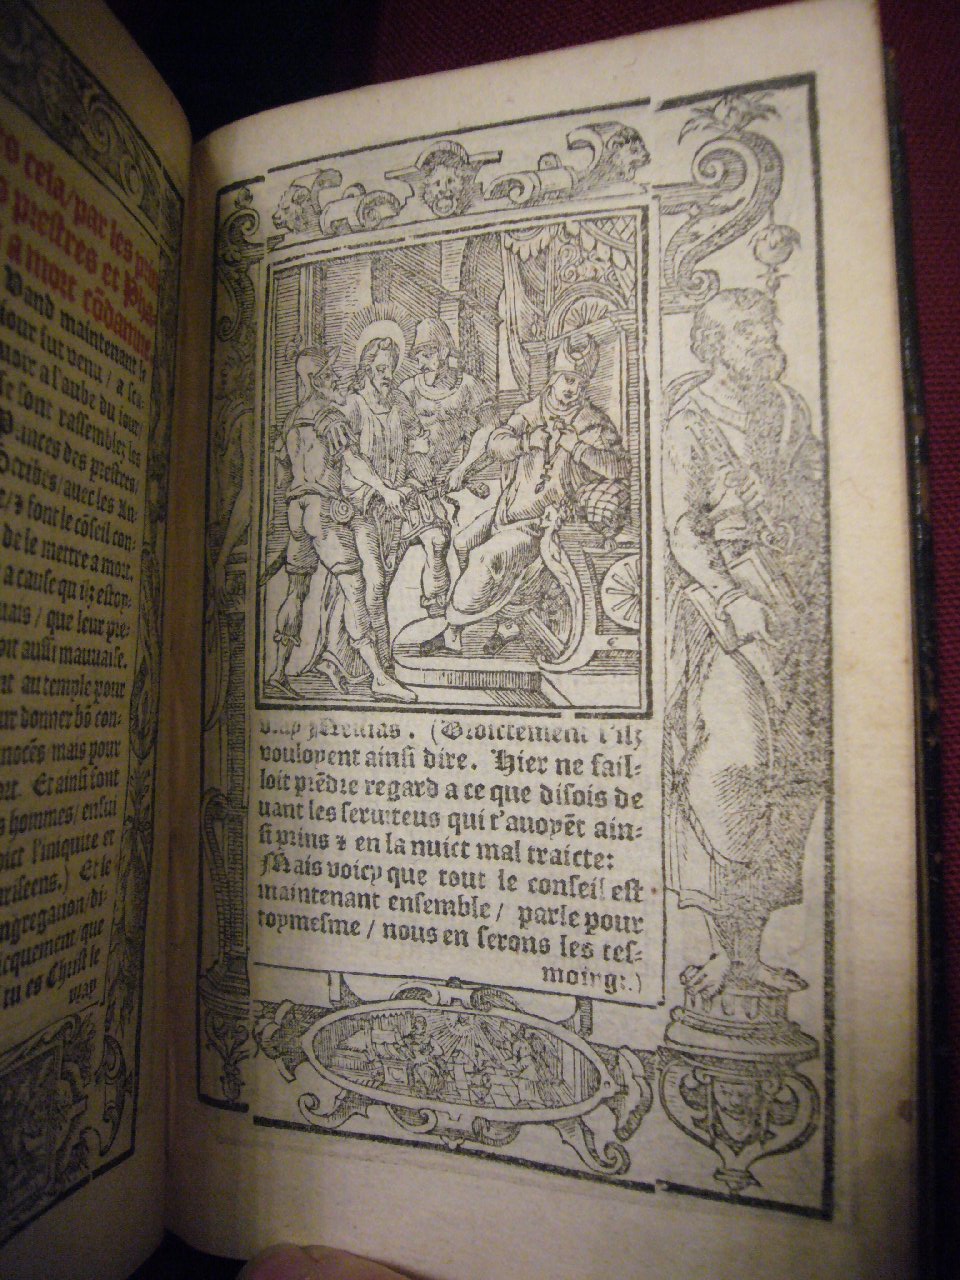 cela / par les
prestres et
a mort cõdamne.
Vand maintenant le
iour fut venu / a sca-
uoir a l'aube du iour:
se sont rassemblez les
Princes des prestres /
avec les An-
ꝛ font le cõseil con-
de le mettre a mort.
a cause qu'ilz estoy-
que leur
oit aussi mauuaise.
au temple pour
donner bõ con-
nocẽs mais pour
Et ainsi sont
hommes / ensui
l'iniquite et
riseens.) Et le
ngregation / di-
que
tu es Christ le
vray
vray Messias. (Droictement s'ilz
vouloyent ainsi dire. Hier ne fail-
loit prẽdre regard a ce que disois de
uant les seruiteus qui t'auoyẽt ain-
si prins ꝛ en la nuict mal traicte:
Mais voicy que tout le conseil est
maintenant ensemble / parle pour
toymesme / nous en serons les tes-
moings:)